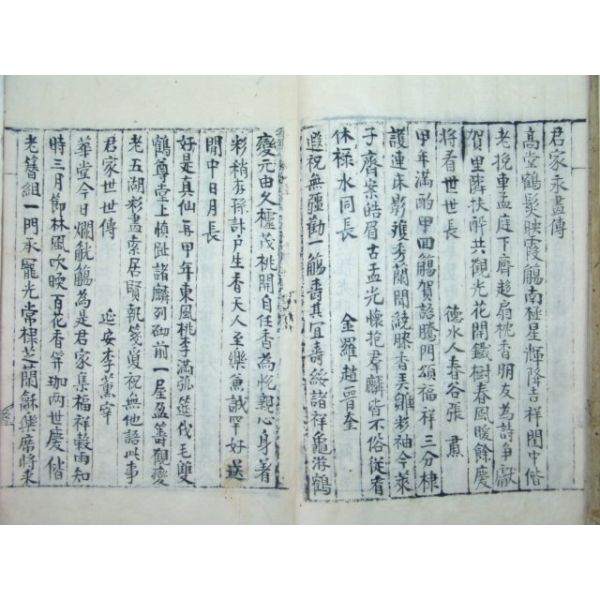 君家永晝傳
高堂鶴髮映霞觴南極星輝降吉祥閏中偕
老挽車孟庭下齊趍扇枕香朋友為詩爭獻
賀里隣扶醉共觀光花開鐵樹春風暖餘慶
將看世世長 德水人春谷張肅
甲年滿酌甲回觴賀語騰門頌福祥三分棣
護連床影獲秀蘭開繞膝香美雛彩袖今來
子齊案皓眉古孟光懷抱群麟皆不俗從看
休祿水同長 金羅趙晋奎
遐祝無疆勸一觴壽其宜壽綏諸祥龜游鶴
慶元由久櫃茂桃開自任香為悅親心身着
彩稍存孫計戶生香天人至樂魚誠罕好送
閒中日月長
好是真仙再甲年東風桃李滿弧筵伐毛雙
鶴尊堂上楨趾諸麟列砌前一屋盈籌觀慶
老五湖彩畫案居賢執箋更祝無他語此事
君家世世傳 延安李薰宰
華堂今日爛觥觴為是君家集福祥穀雨知
時三月節林風吹暖百花香笄珈兩世慶偕
老簪組一門承寵光常棣芝蘭龢樂席將來